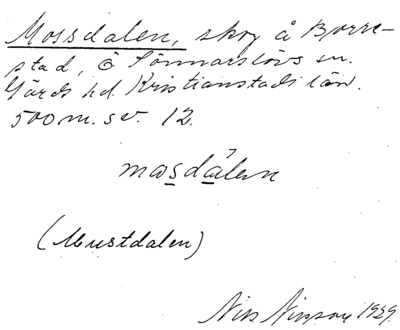 Mossdalen, skog å Borre-
stad, Ö Sönnarslövs sn.
Gärds hd. Kristianstads län.
500 m. sv. 12.
mosdálen
(Mustdalen)
Nils Nilsson 1929.